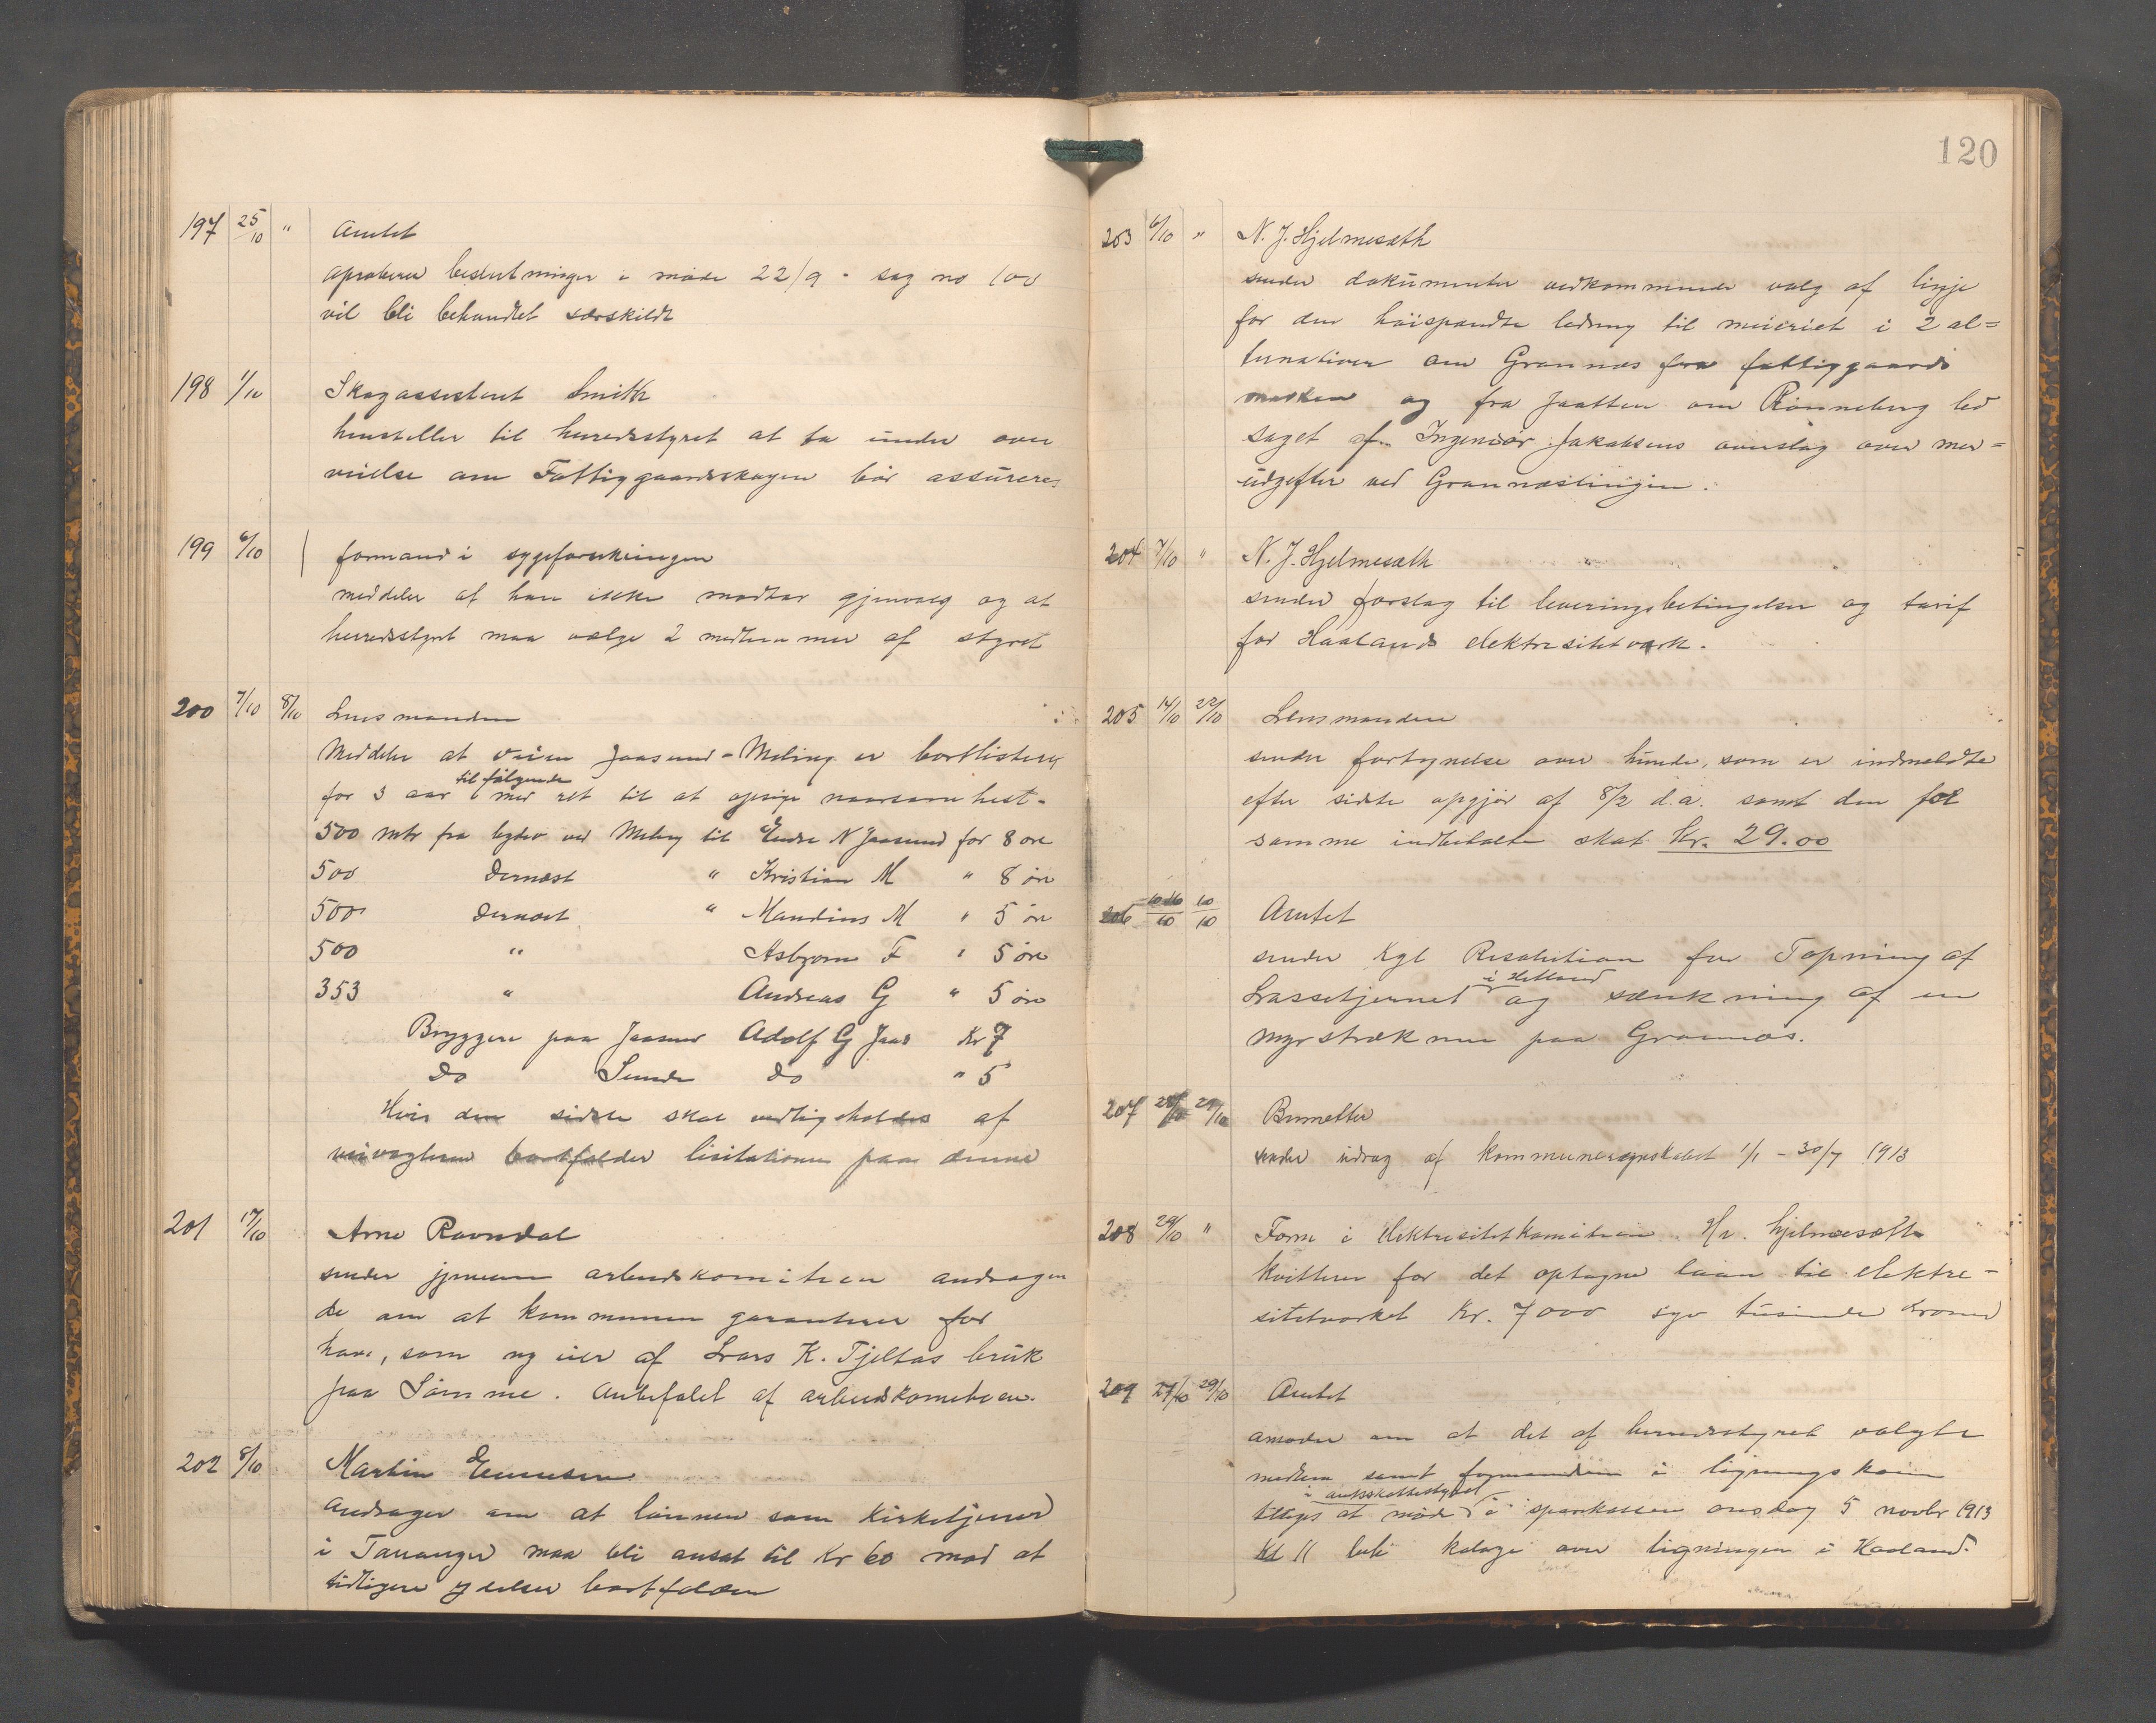 197 25/10 " Amtet
aproberer beslutninger i møde 22/9 - sag no 100
vil bli behandlet særskildt
198 1/10 Skogassistent Smith
henstiller til herredsstyret at ta under over
veielse om Fattiggaardsskogen bør assureres
199 6/10 formand i sygeforsikringen
meddeler at han ikke modtar gjenvalg og at
herredsstyret maa vælge 2 medlemmer af styret
200 7/10 8/10 Lensmanden
Meddeler at veien Jaasund - Meling er bortlisteret
til følgende
for 3 aar med ret til at opsige naarsomhelst -
500 mtr fra bydev ved Meling til Endre N Jaasund for 8 øre
500 dernæst " Kristian M " 8 øre
500 dernæst " Mandius M " 5 øre
500 " Asbjørn F " 5 øre
353 " Andreas G " 5 øre
Bryggen paa Jaasund Adolf G Jaas Kr 7
Do Sunde do " 5
Hvis den sidste skal vedligeholdes af
veivogteren bortfalder lisitationen paa denne
201 17/10 Arne Ravndal
sender gjennem arbeidskomiteen andragen
de om at kommunen garanterer for
ham, som ny eier af Lars K. Tjeltas bruk
paa Sømme. Anbefalet af arbeidskomiteen.
202 8/10 Martin
Andrager om at lønnen som Kirketjener
i Tananger maa bli ansat til Kr 60 mod at
tidligere ydelser bortfalder
120
203 6/10 " N. J. Hjelmesæth
sender dokumenter vedkommende valg af linje
for den høispændte ledning til meieriet i 2 al=
ternativer om Grannæs fra fattiggaards
marken og fra Jaatten om Rønneberg led
saget af Ingeniør Jakobsens overslag over mer=
udgifter ved Grannæslinjen.
204 7/10 " N. J. Hjelmesæth
sender forslag til leveringsbetingelser og tarif
for Haalands elektrisitetverk.
205 14/10 22/10 Lensmanden
sender fortegnelse over hunde, som er indmeldte
efter sidste opgjør af 8/2 d.a. samt den for
samme indbetalte skat Kr. 29.00
206 10/10 Amtet
sender Kgl Resolution for Tapning af
i Hetland
Lassetjernet og sænkning af en
myrstrækning paa Grannæs.
207 Brunetter
sender udrag af kommuneregnskabet 1/1 - 30/7 1913
208 29/10 " Form i elektrisitetkomiteen Hr. Hjelmesæth
kvitterer for det optagne laan til elektre-
sitetverket Kr. 7000 syv tusinde kroner
209 29/10 Amtet
anmoder om at det af herredsstyret valgte
medlem samt formanden i lignings kom
i amtsskattestyret
at møde i sparkassen onsdag 5 novbr 1913
Kl 11 klage over ligningen i Haaland.